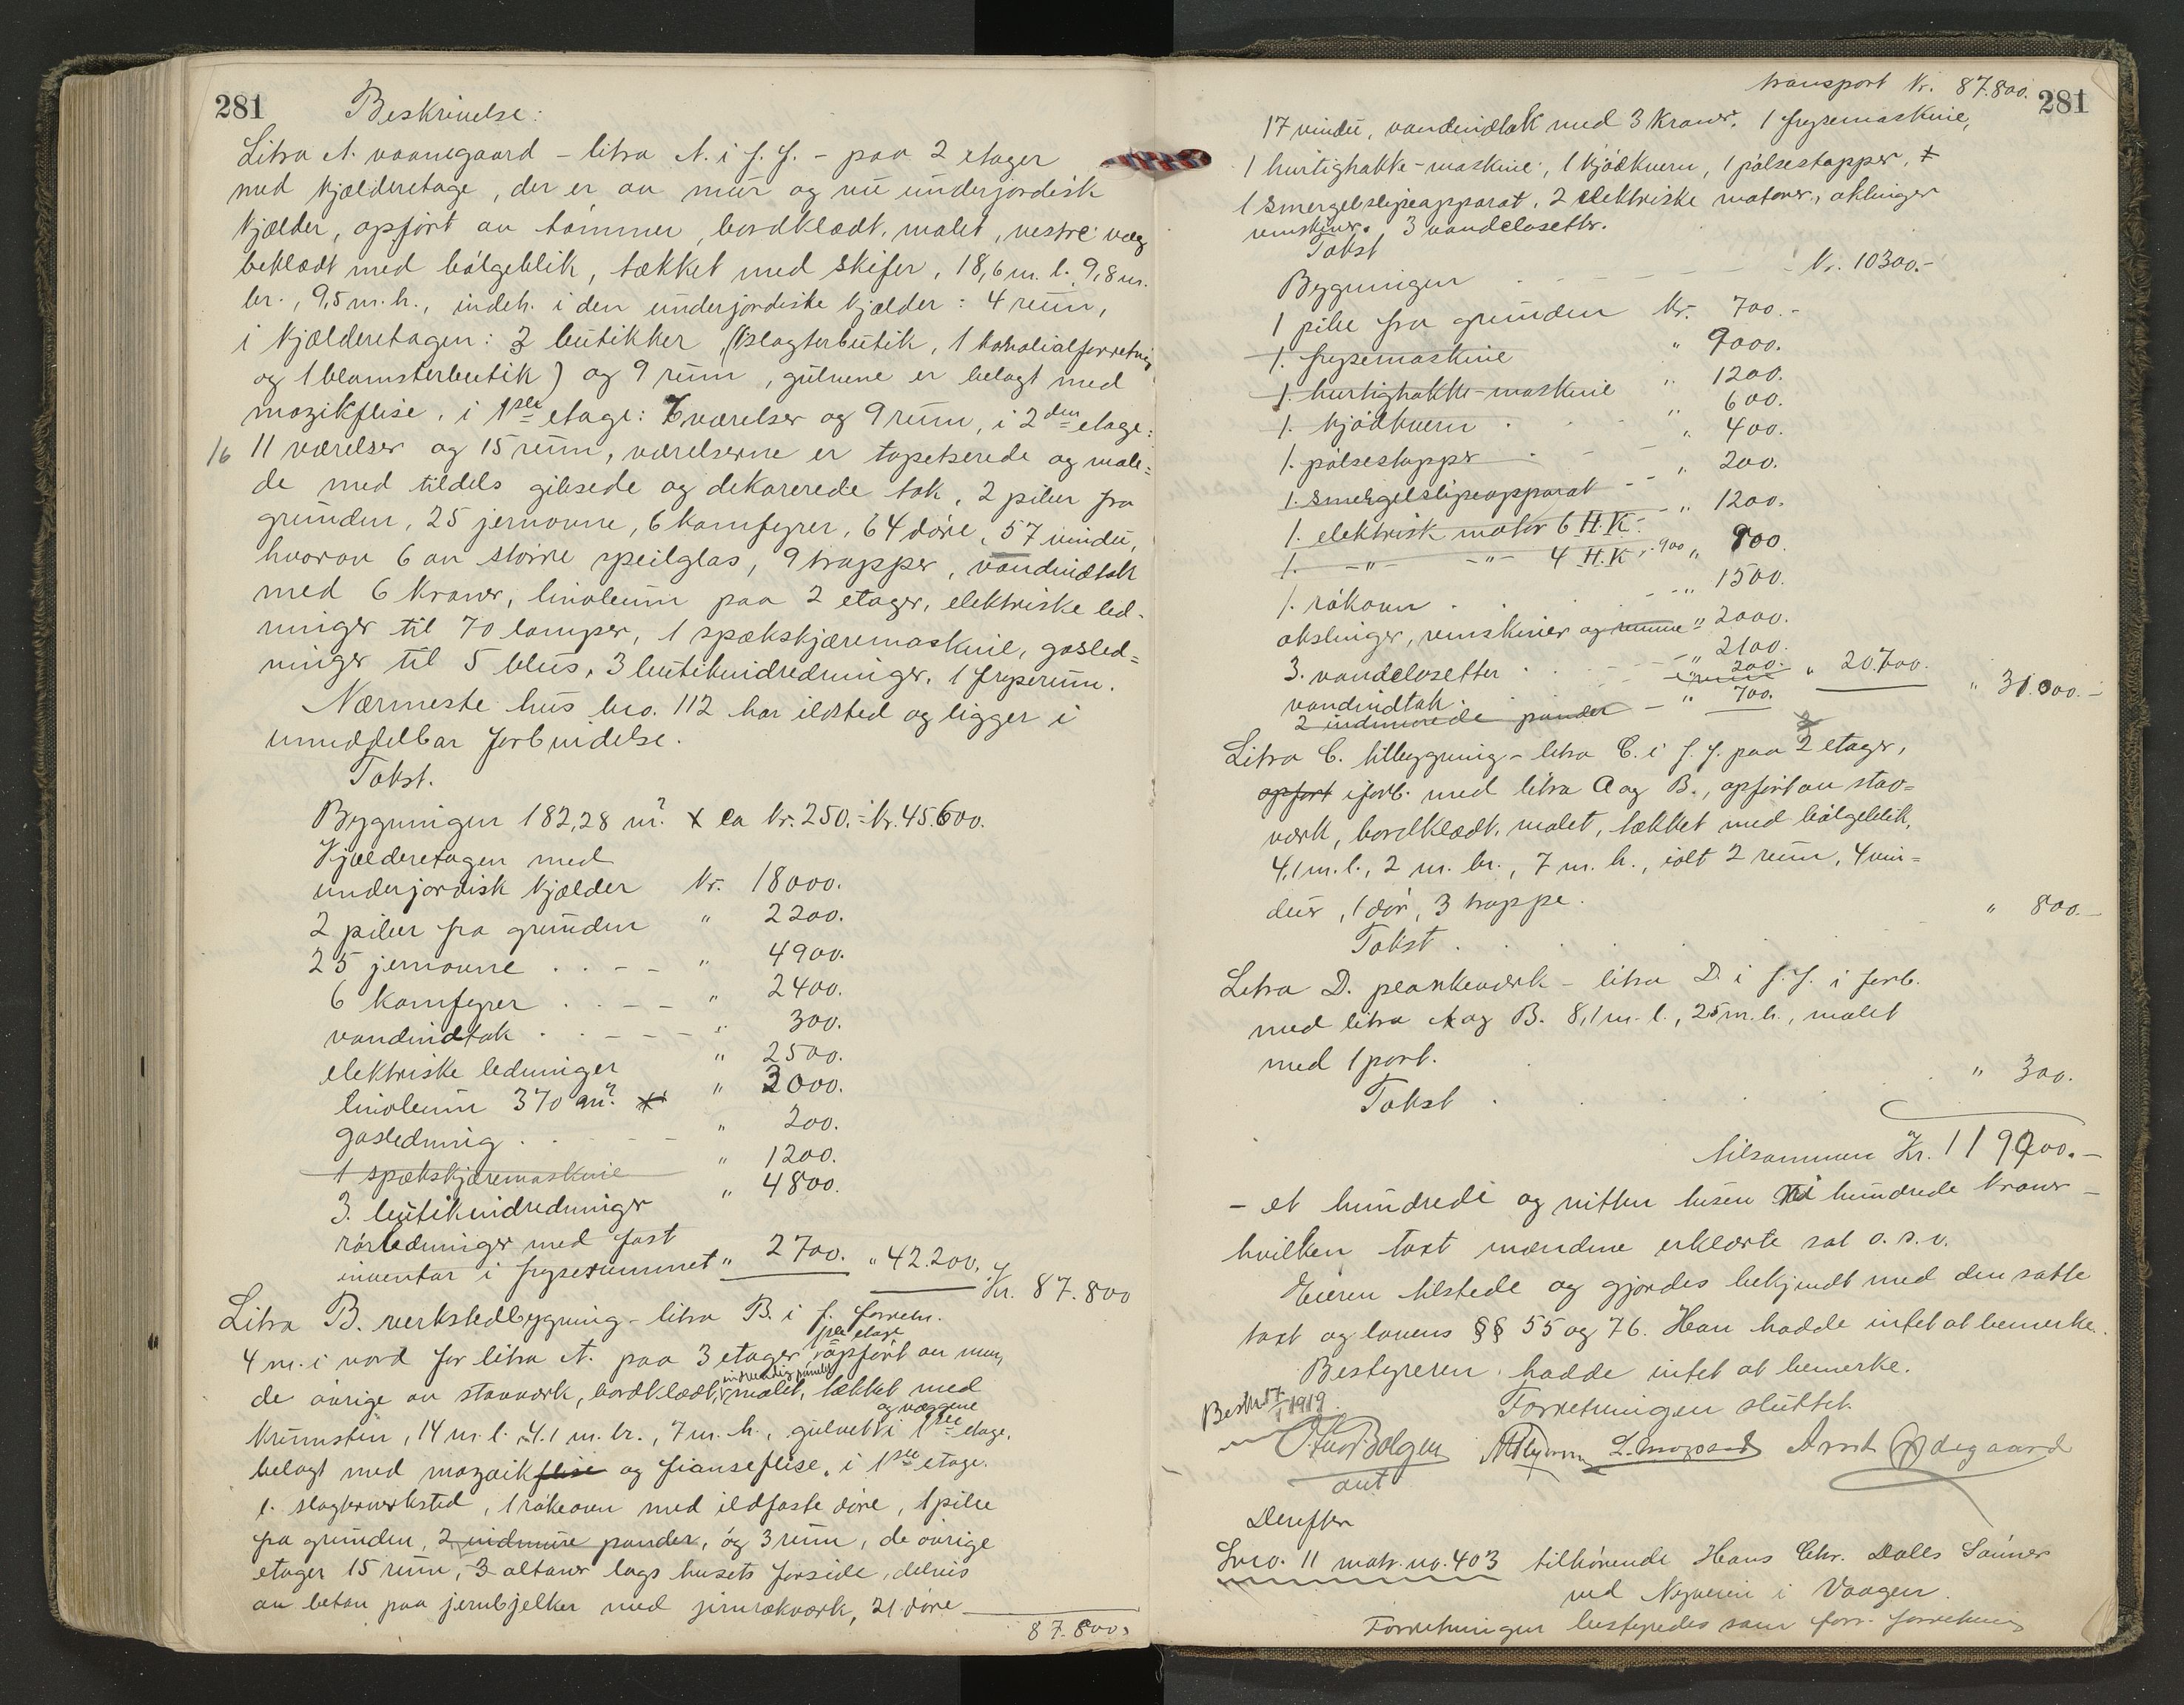 281 Beskrivelse:
Litra A. vaanegaard – litra A. i f. f. – paa 2 etager
med kjælderetage, der er av mur og nu underjordisk
kjælder, opført av tømmer, bordklædt, malet, vestre væg
beklædt med bølgeblik, tækket med skifer, 18,6 m. l. 9,8 m.
br., 9,5 m. h., indeh. i den underjordiske kjælder: 4 rum,
i kjælderetagen: 3 butikker (1 slagterbutik, 1 kolonialforretnig
og 1 blomsterbutik) og 9 rum, gulvene er belagt med
mozikflise, i 1ste etage: 6 værelser og 9 rum, i 2den etage:
16 11 værelser og 15 rum, værelserne er tapetserede og male=
de med tildels gibsede og dekorerede tak, 2 piber fra
grunden, 25 jernovne, 6 komfyrer, 64 døre, 57 vindu,
hvorav 6 av større speilglas, 9 trapper, vandindtak
med 6 kraner, linoleum paa 2 etager, elektriske led-
ninger til 70 lamper, 1 spækskjæremaskine, gasled=
ninger til 5 blus, 3 butikindredninger, 1 fryserum.
Nærmeste hus bro. 112 har ildsted og ligger i
umiddelbar forbindelse.
Takst.
Bygningen 182,28 m². x ca kr. 250.- = kr. 45.600.
Kjælderetagen med
underjordisk kjælder kr. 18000.
2 piber fra grunden " 2200.
25 jernovne . . – – " 4900.
6 komfyrer . . – – " 2400.
vandindtak . . – – – " 300.
elektriske ledninger " 2500.
linoleum 370 m². " 3000.
gasledning . . – – " 200.
1 spækskjæremaskine " 1200.
3. butikindredninger " 4800.
rørledninger med fast
inventar i fryserummet " 2700. " 42.200. Kr. 87.800
Litra B. verkstedbygning – litra B. i f. forretn.
4 m. i nord for litra A. paa 3 etager, 1ste etage opført av mur,
de øvrige av stavverk, bordklædt, malet, tækket med
krumsten, 14 m. l. 4.1 m. br., 7 m. h., gulvet og væggene i 1ste etage,
belagt med mozaikflise og fianseflise, i 1ste etage.
1. slagterverksted, 1 røkeovn med ildfaste døre, 1 pibe
fra grunden, 2 indmure pander, og 3 rum, de øvrige
etager 15 rum, 3 altaner lags husets forside, delvis
av beton paa jernbjelker med jernrækverk, 21 døre
87.800.
transport kr. 87.800. 281
17 vindu, vandindtak med 3 kraner, 1 frysemaskine,
1 hurtighakke-maskine, 1 kjødkvern, 1 pølsestapper,
1 smergelslipeapparat, 2 elektriske motorer, akslinger
remskiver. 3 vandclosetter.
Takst
Bygningen . – – – – kr. 10300.-
1 pibe fra grunden kr. 700.-
1. frysemaskine " 9000.
1. hurtighakke-maskine " 1200.
1. kjødkvern . " 600.
1. pølsestapper . – – " 400.
1. smergelslipeapparat – – " 200.
1. elektrisk motor 6 H.K. – " 1200.
1. –"– –"– 4 H.K. 900 " 900.
1. røkovn . . – – " 1500.
akslinger, remskiver og remme " 2000.
3. vandclosetter . – – " 2100.
vandindtak. 200. " 20.700. " 31.000.–
2 indmurede pander – " 700.
Litra C. tilbygning – litra C. i f. f. paa 2 etager,
opført i forb. med litra A og B., opført av stav=
værk, bordklædt, malet, tækket med bølgeblik,
4,1 m. l., 2 m. br., 7 m. h., ialt 2 rum, 4 vin=
duer, 1 dør, 3 trappe.
Takst . . . . . " 800.–
Litra D. plankeværk – litra D. i f. f. i forb.
med litra A og B. 8,1 m. l., 2,5 m. h., malet
med 1 port.
Takst . . . . . " 300.
tilsammen Kr. 119900.–
– et hundrede og nitten tusen ni hundrede kroner –
hvilken taxt mændene erklærte sat o. s. v.
Eieren tilstede og gjordes bekjendt med den satte
taxt og lovens §§ 55 og 76. Han hadde intet at bemerke.
Bestyreren hadde intet at bemerke.
Forretningen sluttet.
1919
Bolgen Arnt Ødegaard
aut
Derefter
Lnro. 11 matr. no. 403 tilhørende Hans Chr. Dalls Sønner
ved Nyveien i Vaagen.
Forretningen bestyredes som forr. forretning